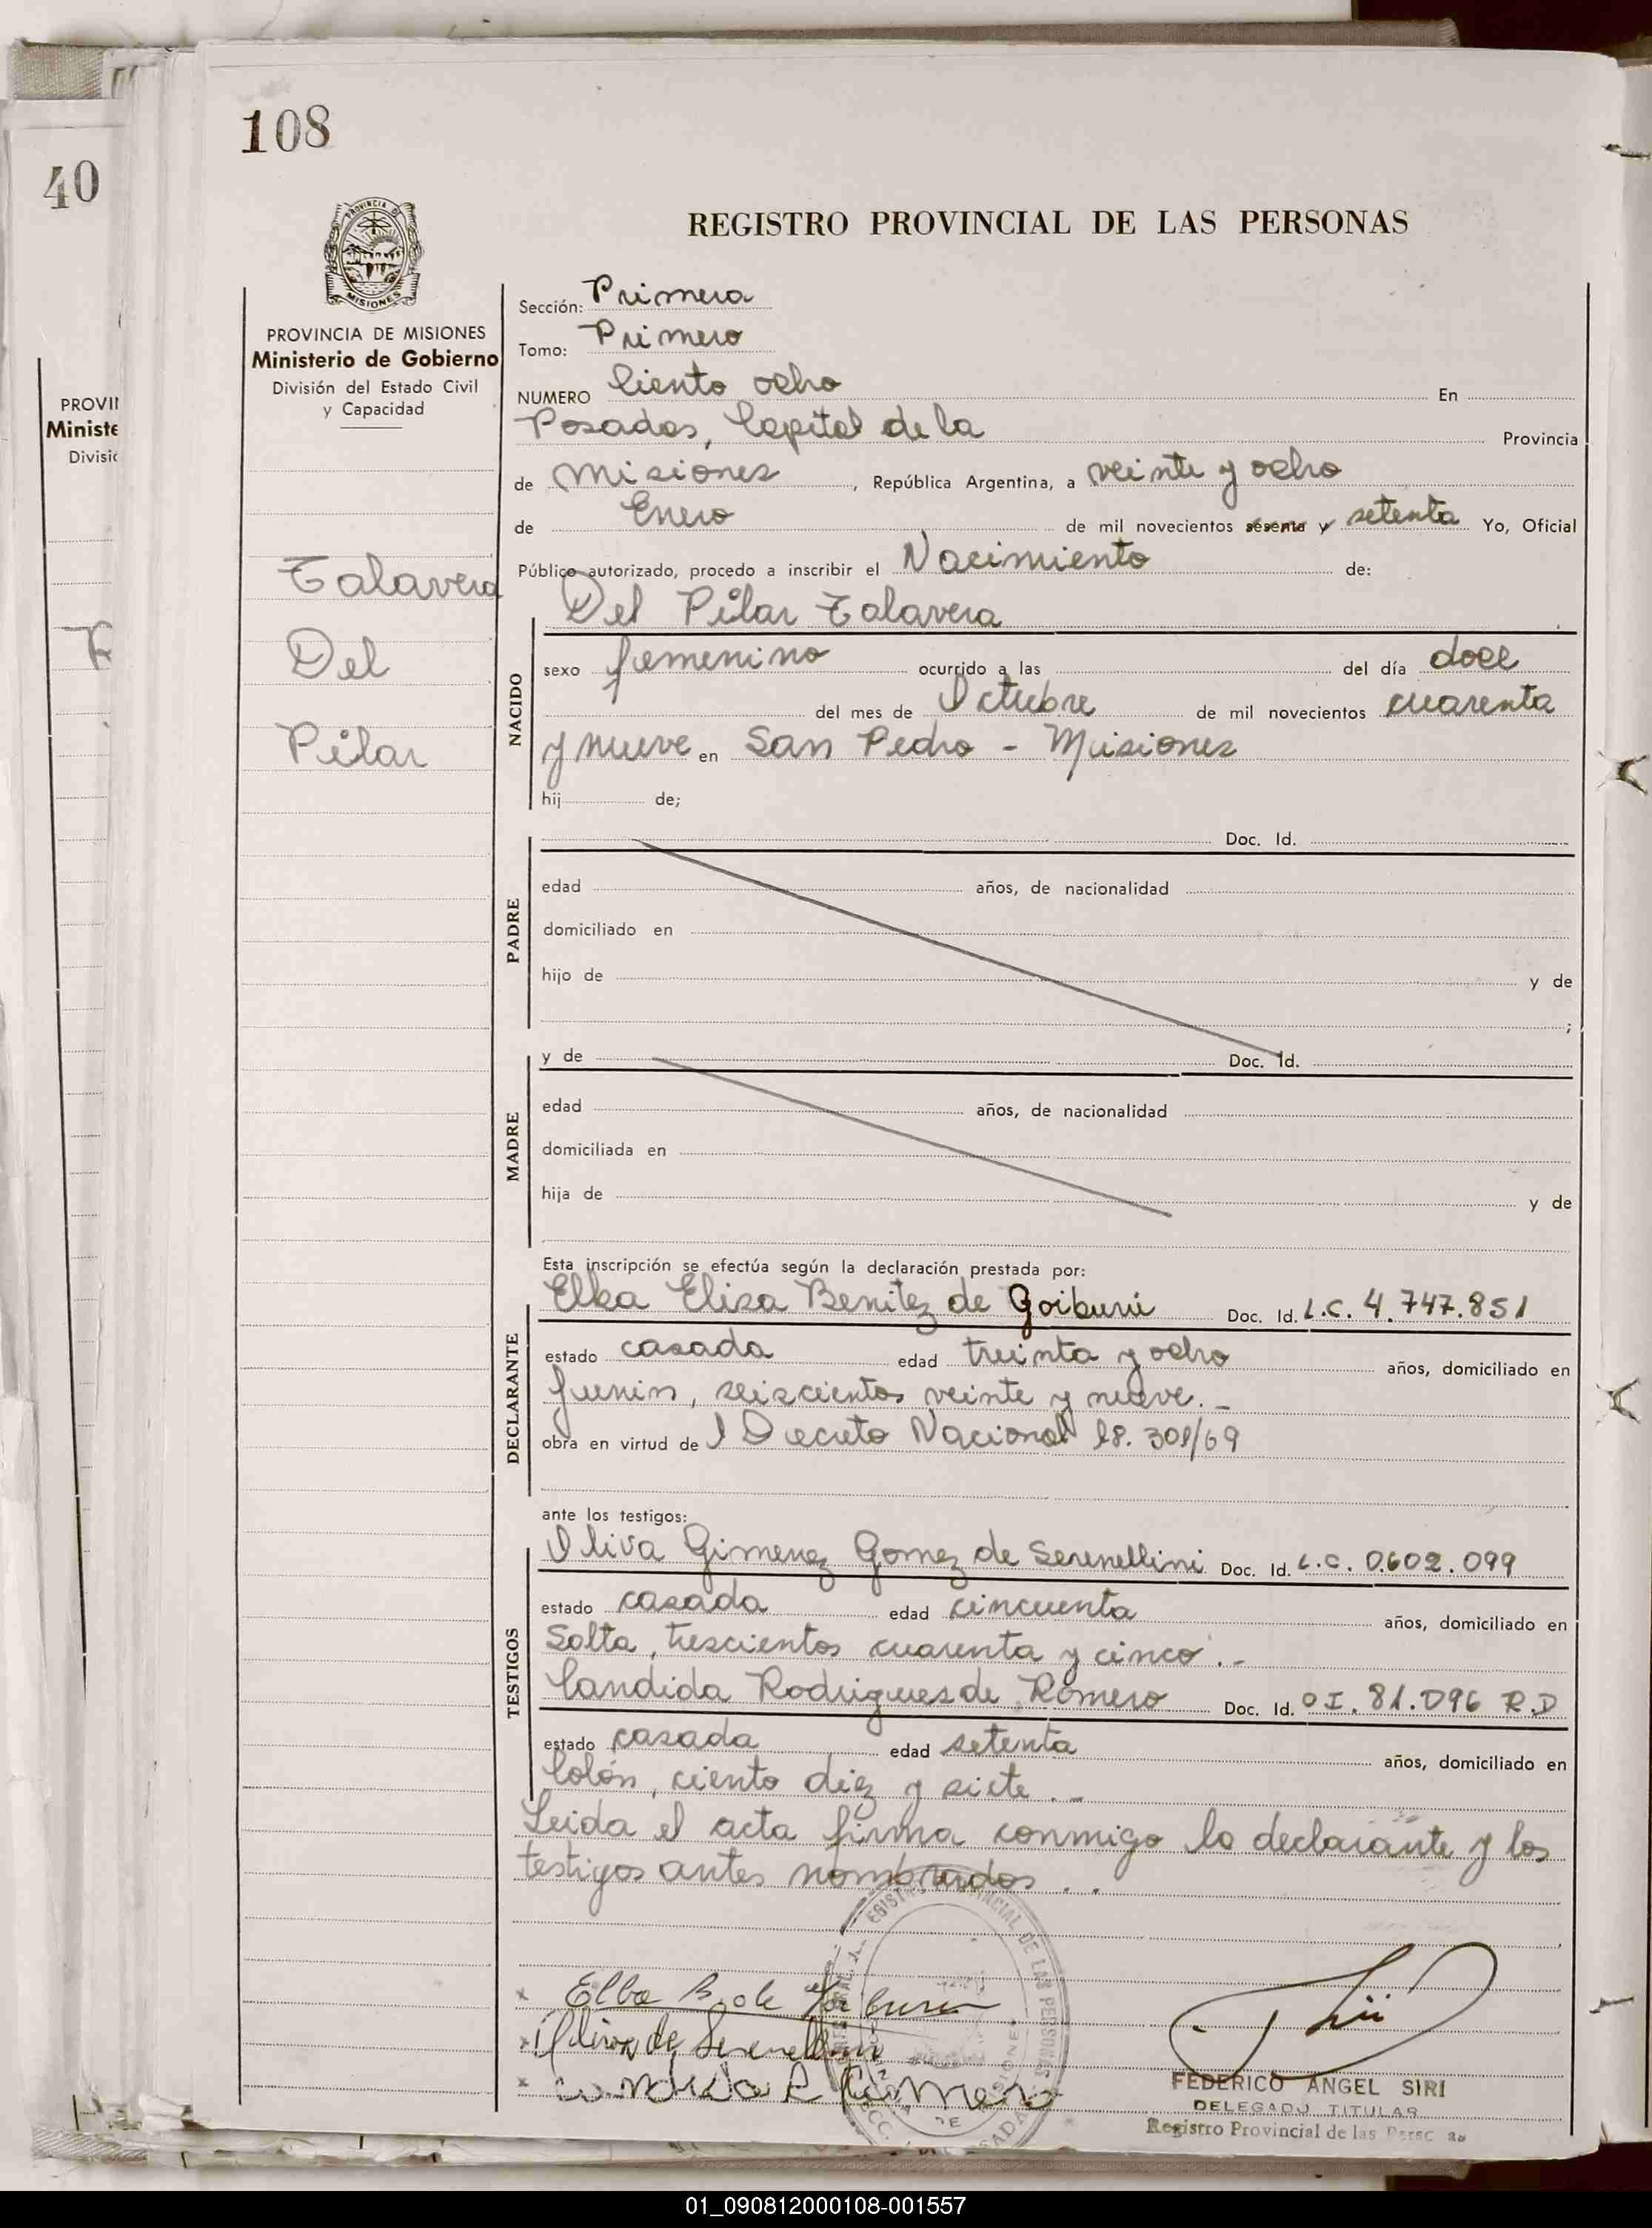 108
40
PROVINCIA DE
MISIONES
REGISTRO PROVINCIAL DE LAS PERSONAS
PROVINCIA DE MISIONES
Ministerio de Gobierno
División del Estado Civil
y Capacidad
PROVI
Ministe
Divisic
Talavera
Del
Pilar
Sección: Primera
Tomo: Primero
NUMERO Ciento ocho En
Posadas, Capital de la Provincia
de Misiones, República Argentina, a veinte y ocho
de Enero de mil novecientos sesenta y setenta Yo, Oficial
Público autorizado, procedo a inscribir el Nacimiento de:
Del Pilar Talavera
NACIDO
sexo femenino ocurrido a las del día doce
del mes de Octubre de mil novecientos cuarenta
y nueve en San Pedro - Misiones
hij de;
PADRE
Doc. Id.
edad años, de nacionalidad
domiciliado en
hijo de y de
;
MADRE
y de Doc. Id.
edad años, de nacionalidad
domiciliada en
hija de y de
Esta inscripción se efectúa según la declaración prestada por:
DECLARANTE
Elba Elisa Benitez de Goiburú Doc. Id. L.C. 4.747.851
estado casada edad treinta y ocho años, domiciliado en
Junin, seiscientos veinte y nueve.-
obra en virtud del Decreto Nacional 18.301/69
ante los testigos:
TESTIGOS
Oliva Gimenez Gomez de Serenellini Doc. Id. L.C. 0.602.099
estado casada edad cincuenta años, domiciliado en
Salta, trescientos cuarenta y cinco.-
Candida Rodrigues de Romero Doc. Id. OI. 81.096 R.D
estado casada edad setenta años, domiciliado en
Colón, ciento diez y siete..-
Leida el acta firma conmigo la declarante y los
testigos antes nombrados...
REGISTRO PROVINCIAL DE LAS PERSONAS
x Elba B. de Goiburu
x Oliva de Serenellini
x Candida R Romero
FEDERICO ANGEL SIRI
DELEGADO TITULAR
Registro Provincial de las Persc as
01_090812000108-001557